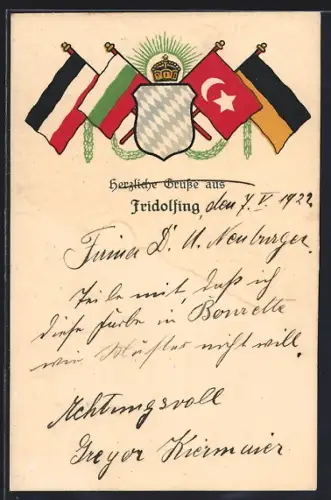 Herzliche Grüße aus
Fridolfing, den 7. V. 1922
Firma D. U. Neuburger.
Teile mit, daß ich
diese Farbe in Bourette
wie Muster nicht will.
Achtungsvoll
Gregor Kiermaier